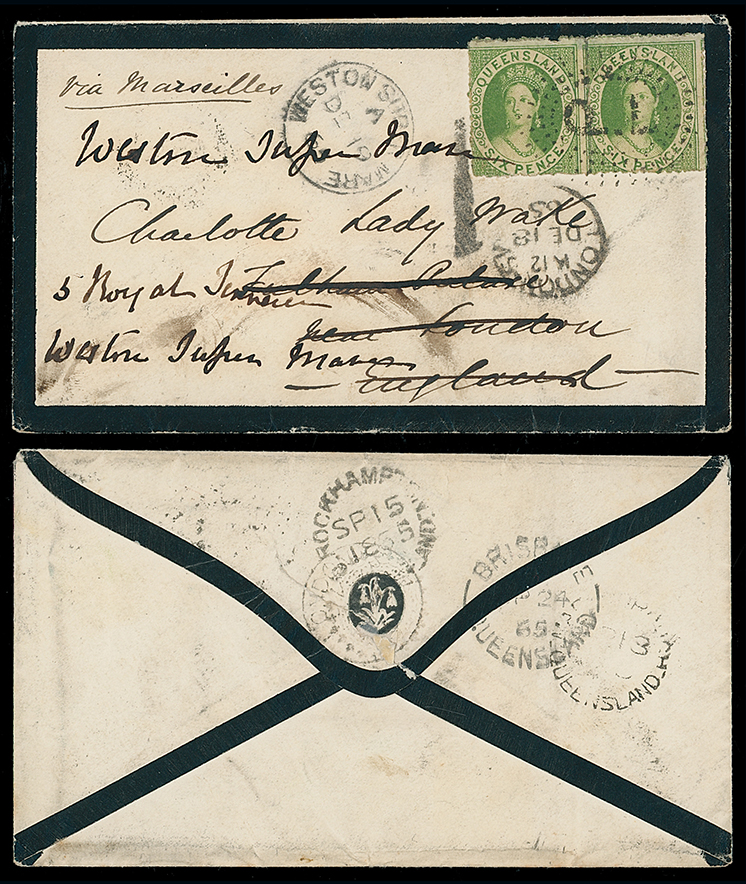 via Marseilles
WESTON SU MARE
A
QUEENSLAND
SIX PENCE
QUEENSLAND
SIX PENCE
QL
Weston Super Mare
Charlotte Lady Wake
LONDON
K 12
DE 18
65
5 Royal
Fulham Palace
near London
Weston Super Mare
England
ROCKHAMPTON
SP 15
1865
BRISBANE
24
65
QUEENSLAND
13
QUEENSLAND